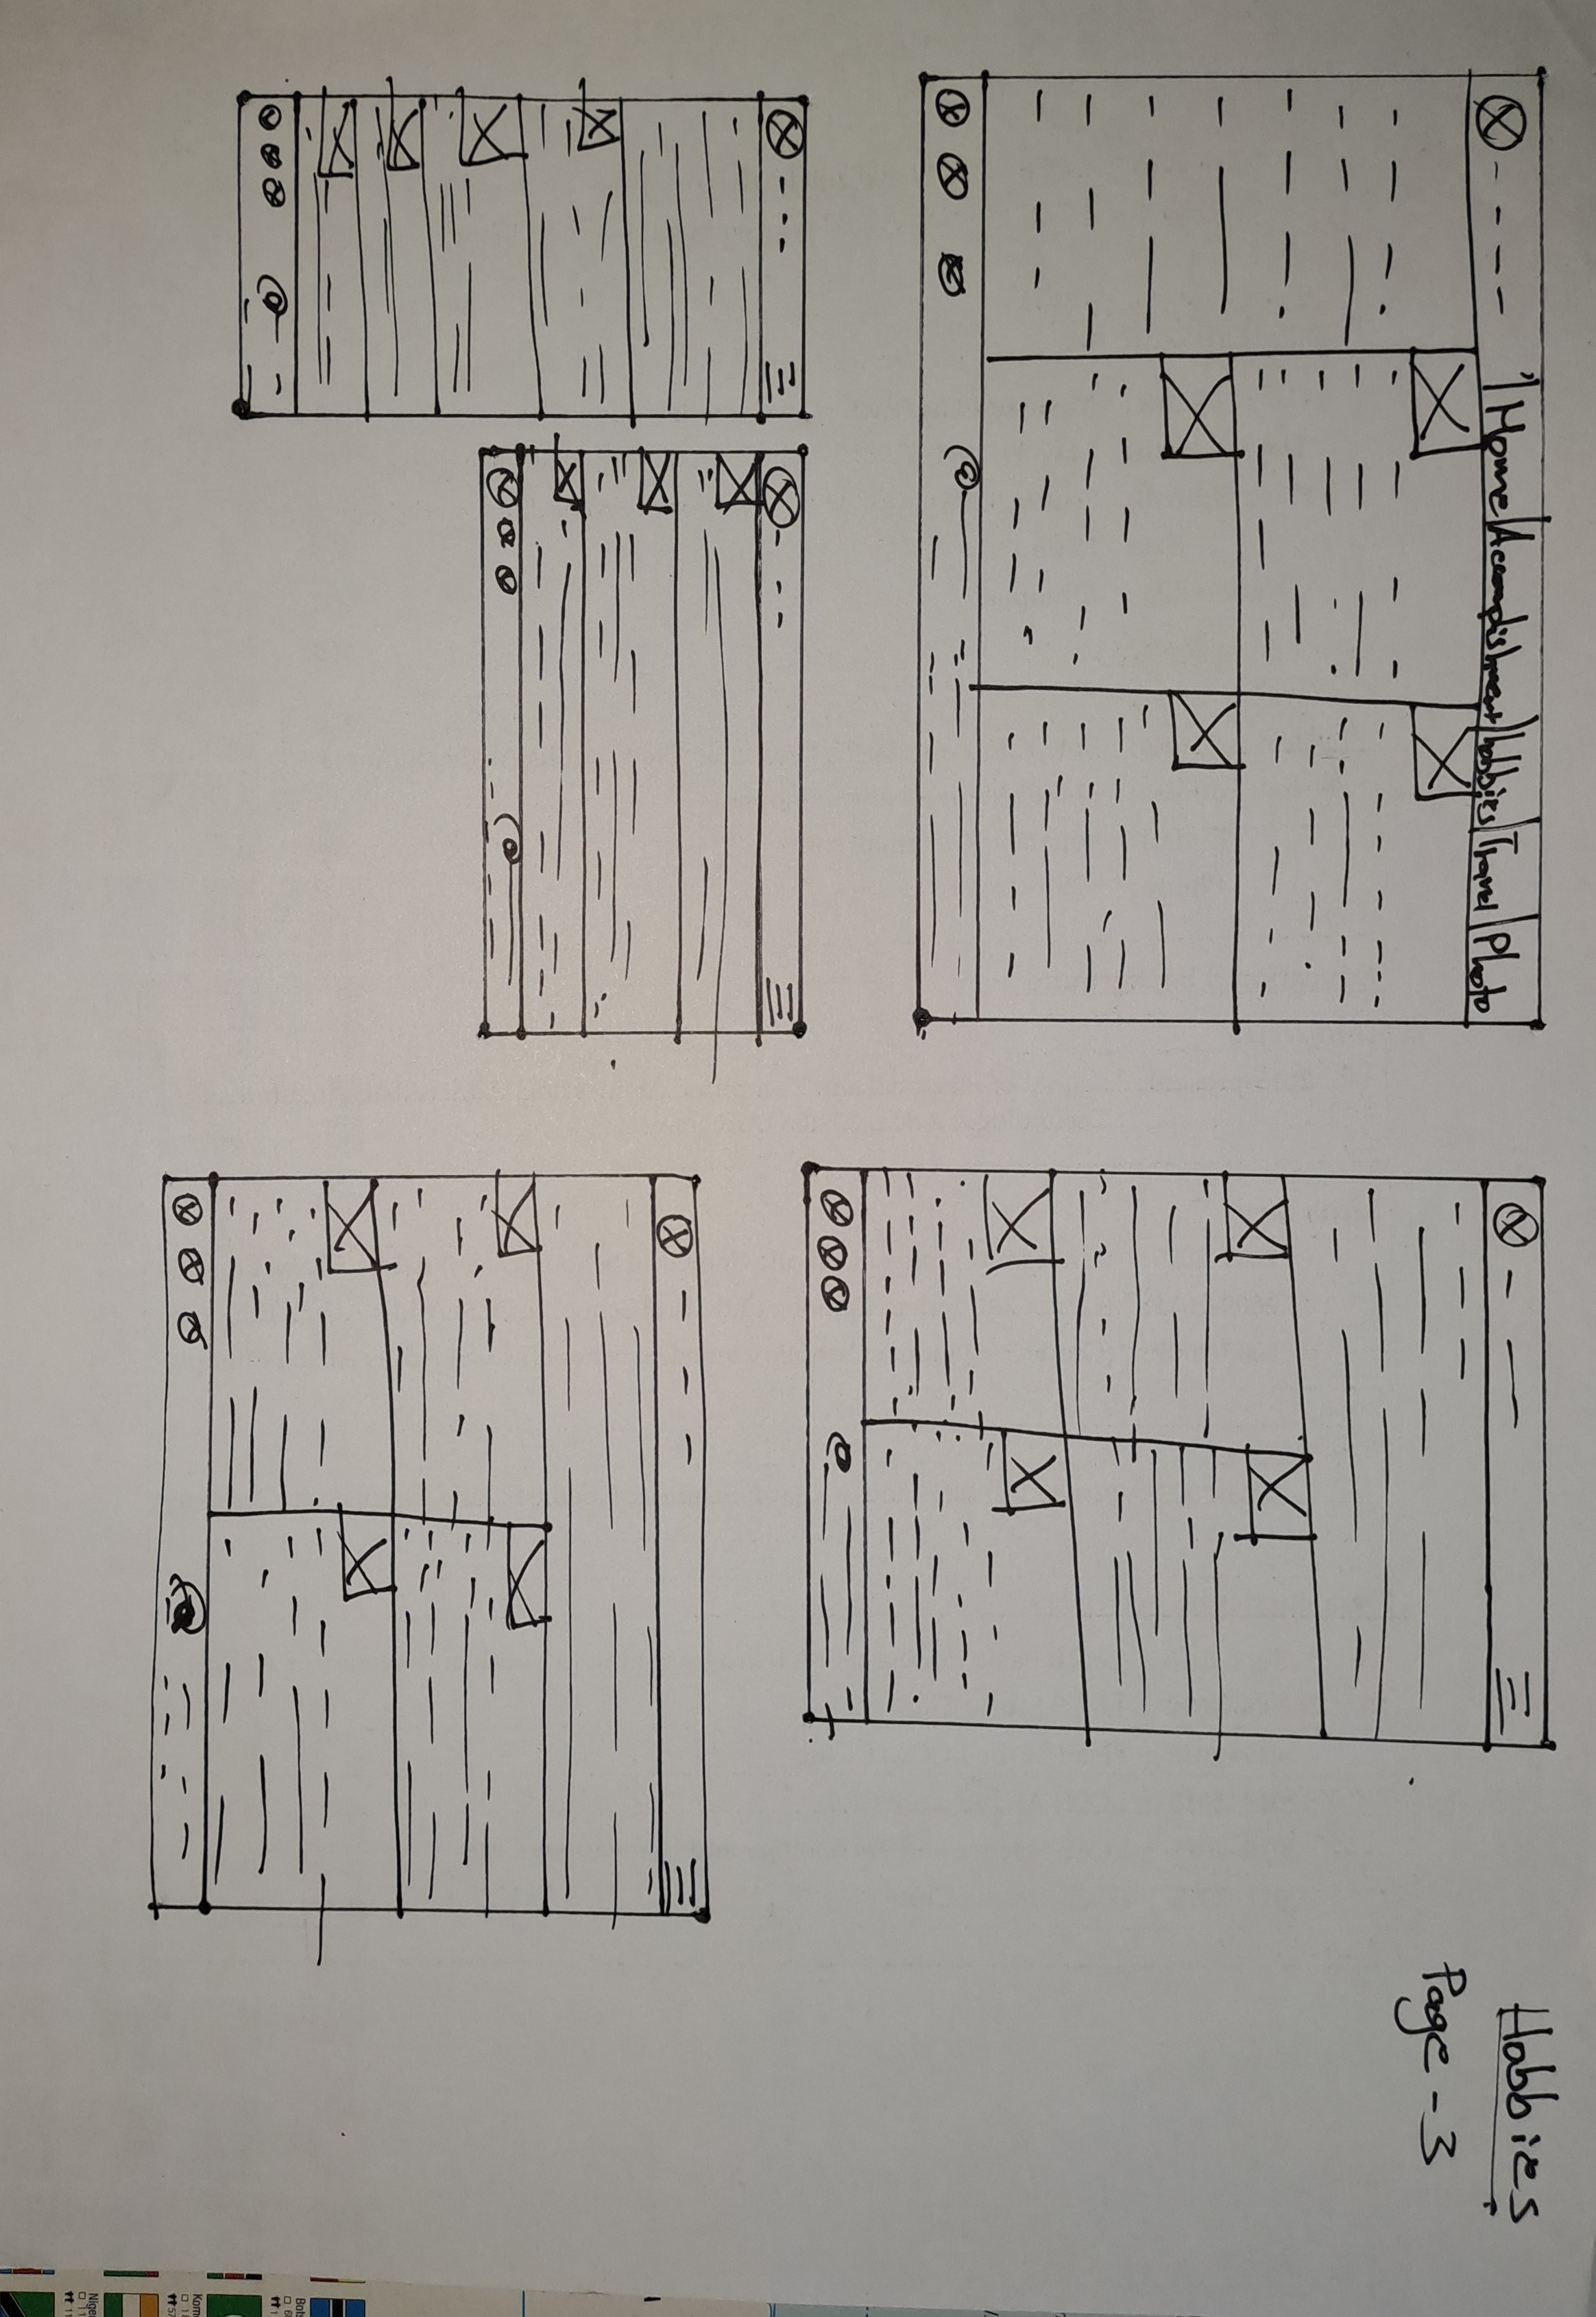 Home Accomplishment hobbies Travel Photo
Hobbies
Page - 3
@
@
@
@
Bots
Kom
Nige